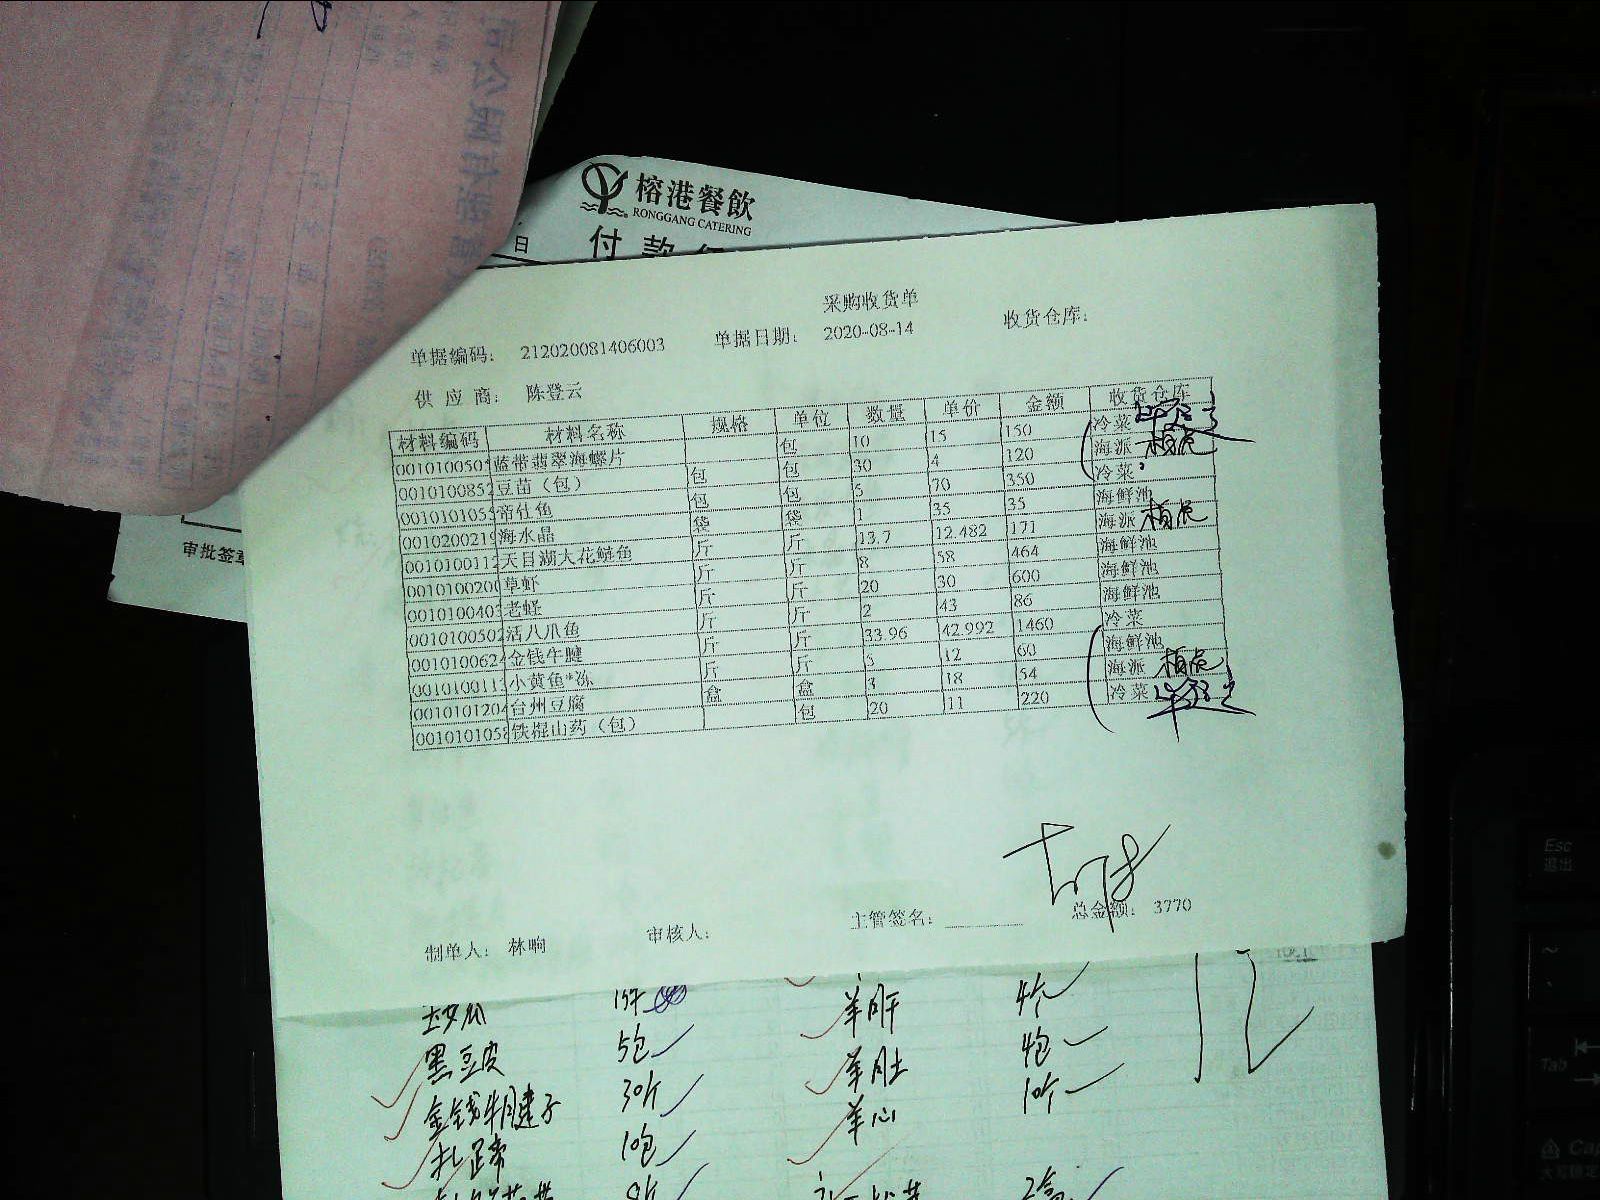 榕港餐飲
RONGGANG CATERING
日 付款
采购收货单
单据编码: 212020081406003 单据日期: 2020-08-14 收货仓库:
供应商: 陈登云
材料编码 材料名称 规格 单位 数量 单价 金额 收货仓库
0010100505 蓝带翡翠海螺片 包 10 15 150 冷菜
001010085 豆苗（包） 包 包 30 4 120 海派
001010105 帝仕鱼 包 包 5 70 350 冷菜
001020021 海水晶 袋 袋 1 35 35 海鲜池
001010011 天目湖大花鲢鱼 斤 斤 13.7 12.482 171 海派
001010020 草虾 斤 斤 8 58 464 海鲜池
001010040 老蛏 斤 斤 20 30 600 海鲜池
001010050 活八爪鱼 斤 斤 2 43 86 海鲜池
001010062 金钱牛腱 斤 斤 33.96 42.992 1460 冷菜
001010011 小黄鱼*冻 斤 斤 5 12 60 海鲜池
001010120 台州豆腐 盒 盒 3 18 54 海派
001010105 铁棍山药（包） 包 20 11 220 冷菜
制单人: 林晌 审核人: 主管签名: 总金额: 3770
审批签章
羊肝 4个
黑豆皮 5包 羊肚 4包
金钱牛腱子 30斤 羊心 10个
10包